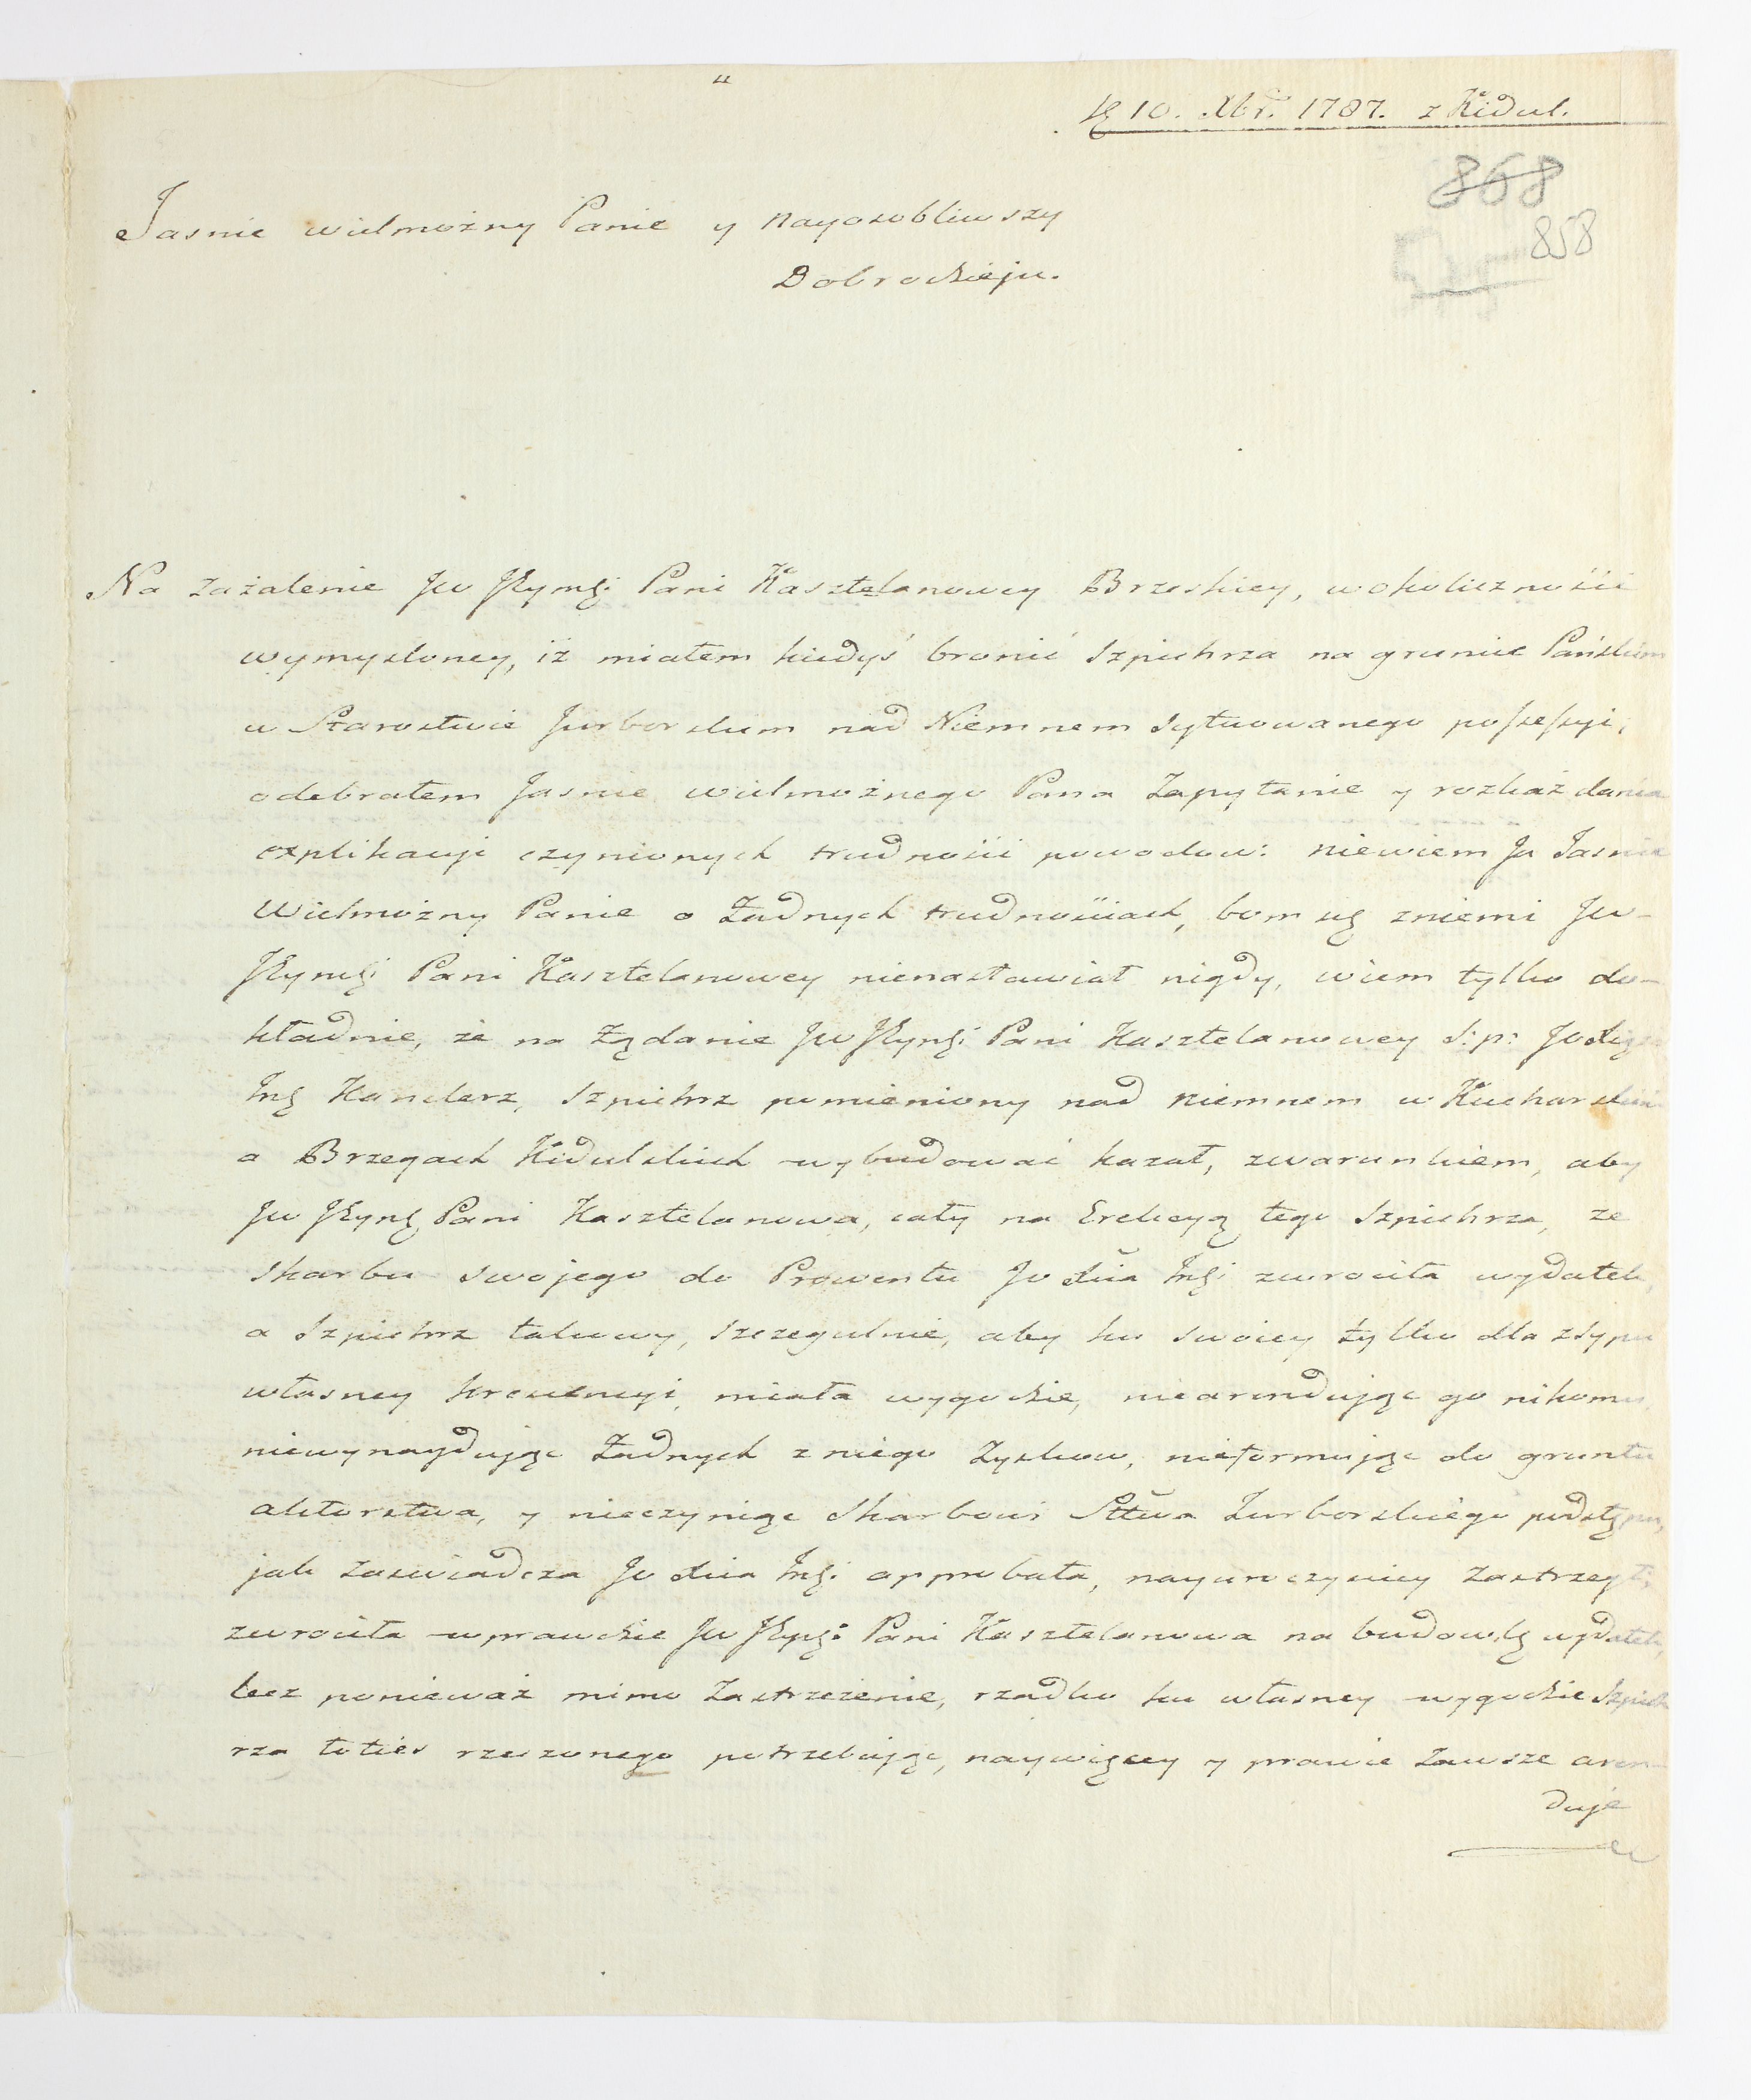 10. Xbr. 1787. z Kidul.
868
858
Jasnie wielmożny Panie y Nayosobliwszy
Dobrodzieju.
Na zażalenie Jw Jeymći Pani Kasztelanowey Brzeskiey, w okoliczności
wymysloney, iż miałem kiedyś bronić Szpichrza na gruncie Pańskim
w Starostwie Jurborskum nad Niemnem sytuowanego possessyi,
odebrałem Jasnie wielmożnego Pana Zapytanie y rozkaż dania
explikacyi czynionych trudności powodow: niewiem Ja Jasnie
Wielmożny Panie o Żadnych trudnościach, bom się zniemi Jw-
Jeymći Pani Kasztelanowey nienastawiał nigdy, wiem tylko do-
kładnie, że na Żądanie Jw Jeymći Pani Kasztelanowey S: p:
Kanclerz, Szpichrz pomieniony nad Niemnem w
a Brzegach Kidulskich wybudować kazał, zwarunkiem, aby
Jw Jeymć Pani Kasztelanowa, cały na Erekcyą tego Szpichrza, ze
Skarbu swojego do Prowentu Jo Xcia Imći zwrociła wydatek,
a Szpichrz takowy, szczegulnie, aby ku swoiey tylko dla zsypu
własney krescencyi, miała wygodzie, niearenduiąc go nikomu,
niewynayduiąc Żadnych z niego Zyskow, nieformując do gruntu
aktorstwa, y nieczyniąc Skarbowi Sttwa Jurborskiego podstępu,
jak Zaswiadcza Jo Xcia Imći approbata, nayuroczyściey Zastrzegł;
zwrociła wprawdzie Jw Jeymći Pani Kasztelanowa na budowlę wydatek,
lecz ponieważ mimo Zastrzeżenie, rzadko ku własney wygodzie Szpich
rza toties rzeczonego potrzebując, naywięcey y prawie Zawsze aren-
duje